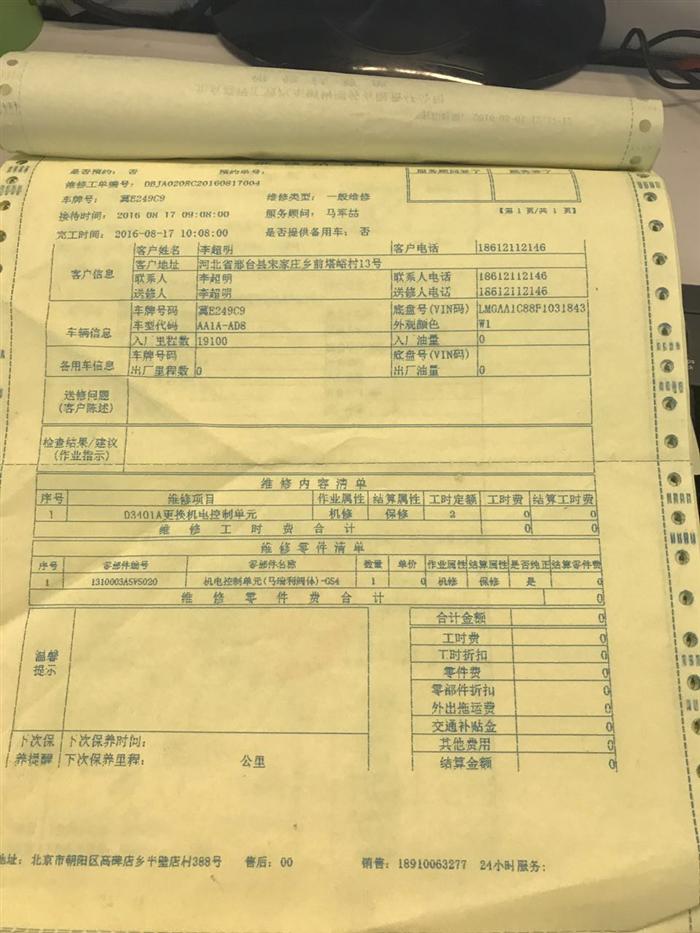 是否预约： 否 预约单号：
维修工单编号： DBJA020RC20160817004
车牌号： 冀E249C9 维修类型： 一般维修
接待时间： 2016 08 17 09:08:00 服务顾问： 马军喆 【第 1 页/共 1 页】
完工时间： 2016-08-17 10:08:00 是否提供备用车： 否
客户信息
客户姓名 李超明 客户电话 18612112146
客户地址 河北省邢台县宋家庄乡前塔峪村13号
联系人 李超明 联系人电话 18612112146
送修人 李超明 送修人电话 18612112146
车辆信息
车牌号码 冀E249C9 底盘号(VIN码) LMGAA1C88F1031843
车型代码 AA1A-AD8 外观颜色 W1
入厂里程数 19100 入厂油量 0
备用车信息
车牌号码 底盘号(VIN码)
出厂里程数 0 出厂油量 0
送修问题
(客户陈述)
检查结果/建议
(作业指示)
维 修 内 容 清 单
序号 维修项目 作业属性 结算属性 工时定额 工时费 结算工时费
1 D3401A更换机电控制单元 机修 保修 2 0 0
维 修 工 时 费 合 计 0 0
维 修 零 件 清 单
序号 零部件编号 零部件名称 数量 单价 作业属性 结算属性 是否纯正 结算零件费
1 1310003ASV5020 机电控制单元(马瑞利阀体)-GS4 1 0 机修 保修 是 0
维 修 零 件 费 合 计 0
合计金额 0
工时费 0
工时折扣 0
零件费 0
零部件折扣 0
外出拖运费 0
交通补贴金 0
其他费用 0
结算金额 0
温馨
提示
下次保
养提醒
下次保养时间：
下次保养里程： 公里
地址： 北京市朝阳区高碑店乡半壁店村388号 售后： 00 销售： 18910063277 24小时服务：